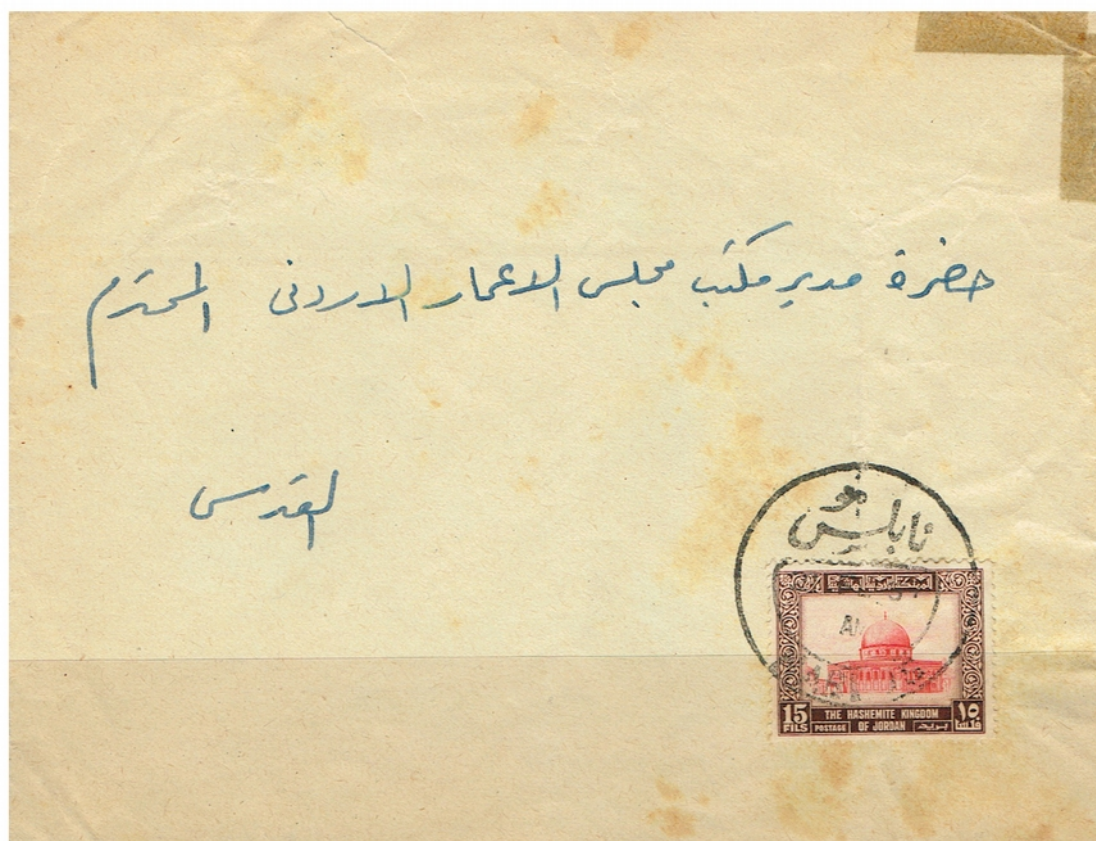 حضرة مدير مكتب مجلس الاعمار الاردنى المحترم
القدس
نابلس
AM
15 FILS
THE HASHEMITE KINGDOM OF JORDAN
POSTAGE بريد
١٥ فلسا